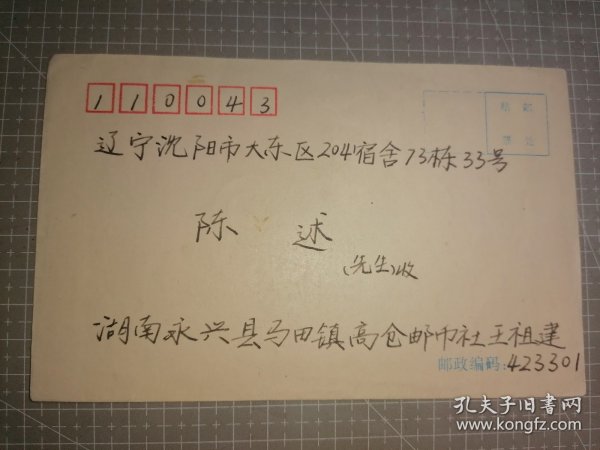 110043
贴 邮
票 处
辽宁沈阳市大东区204宿舍73栋33号
陈 述
(先生)收
湖南永兴县马田镇高仓邮币社王祖建
邮政编码:423301
孔夫子旧书网
www.kongfz.com